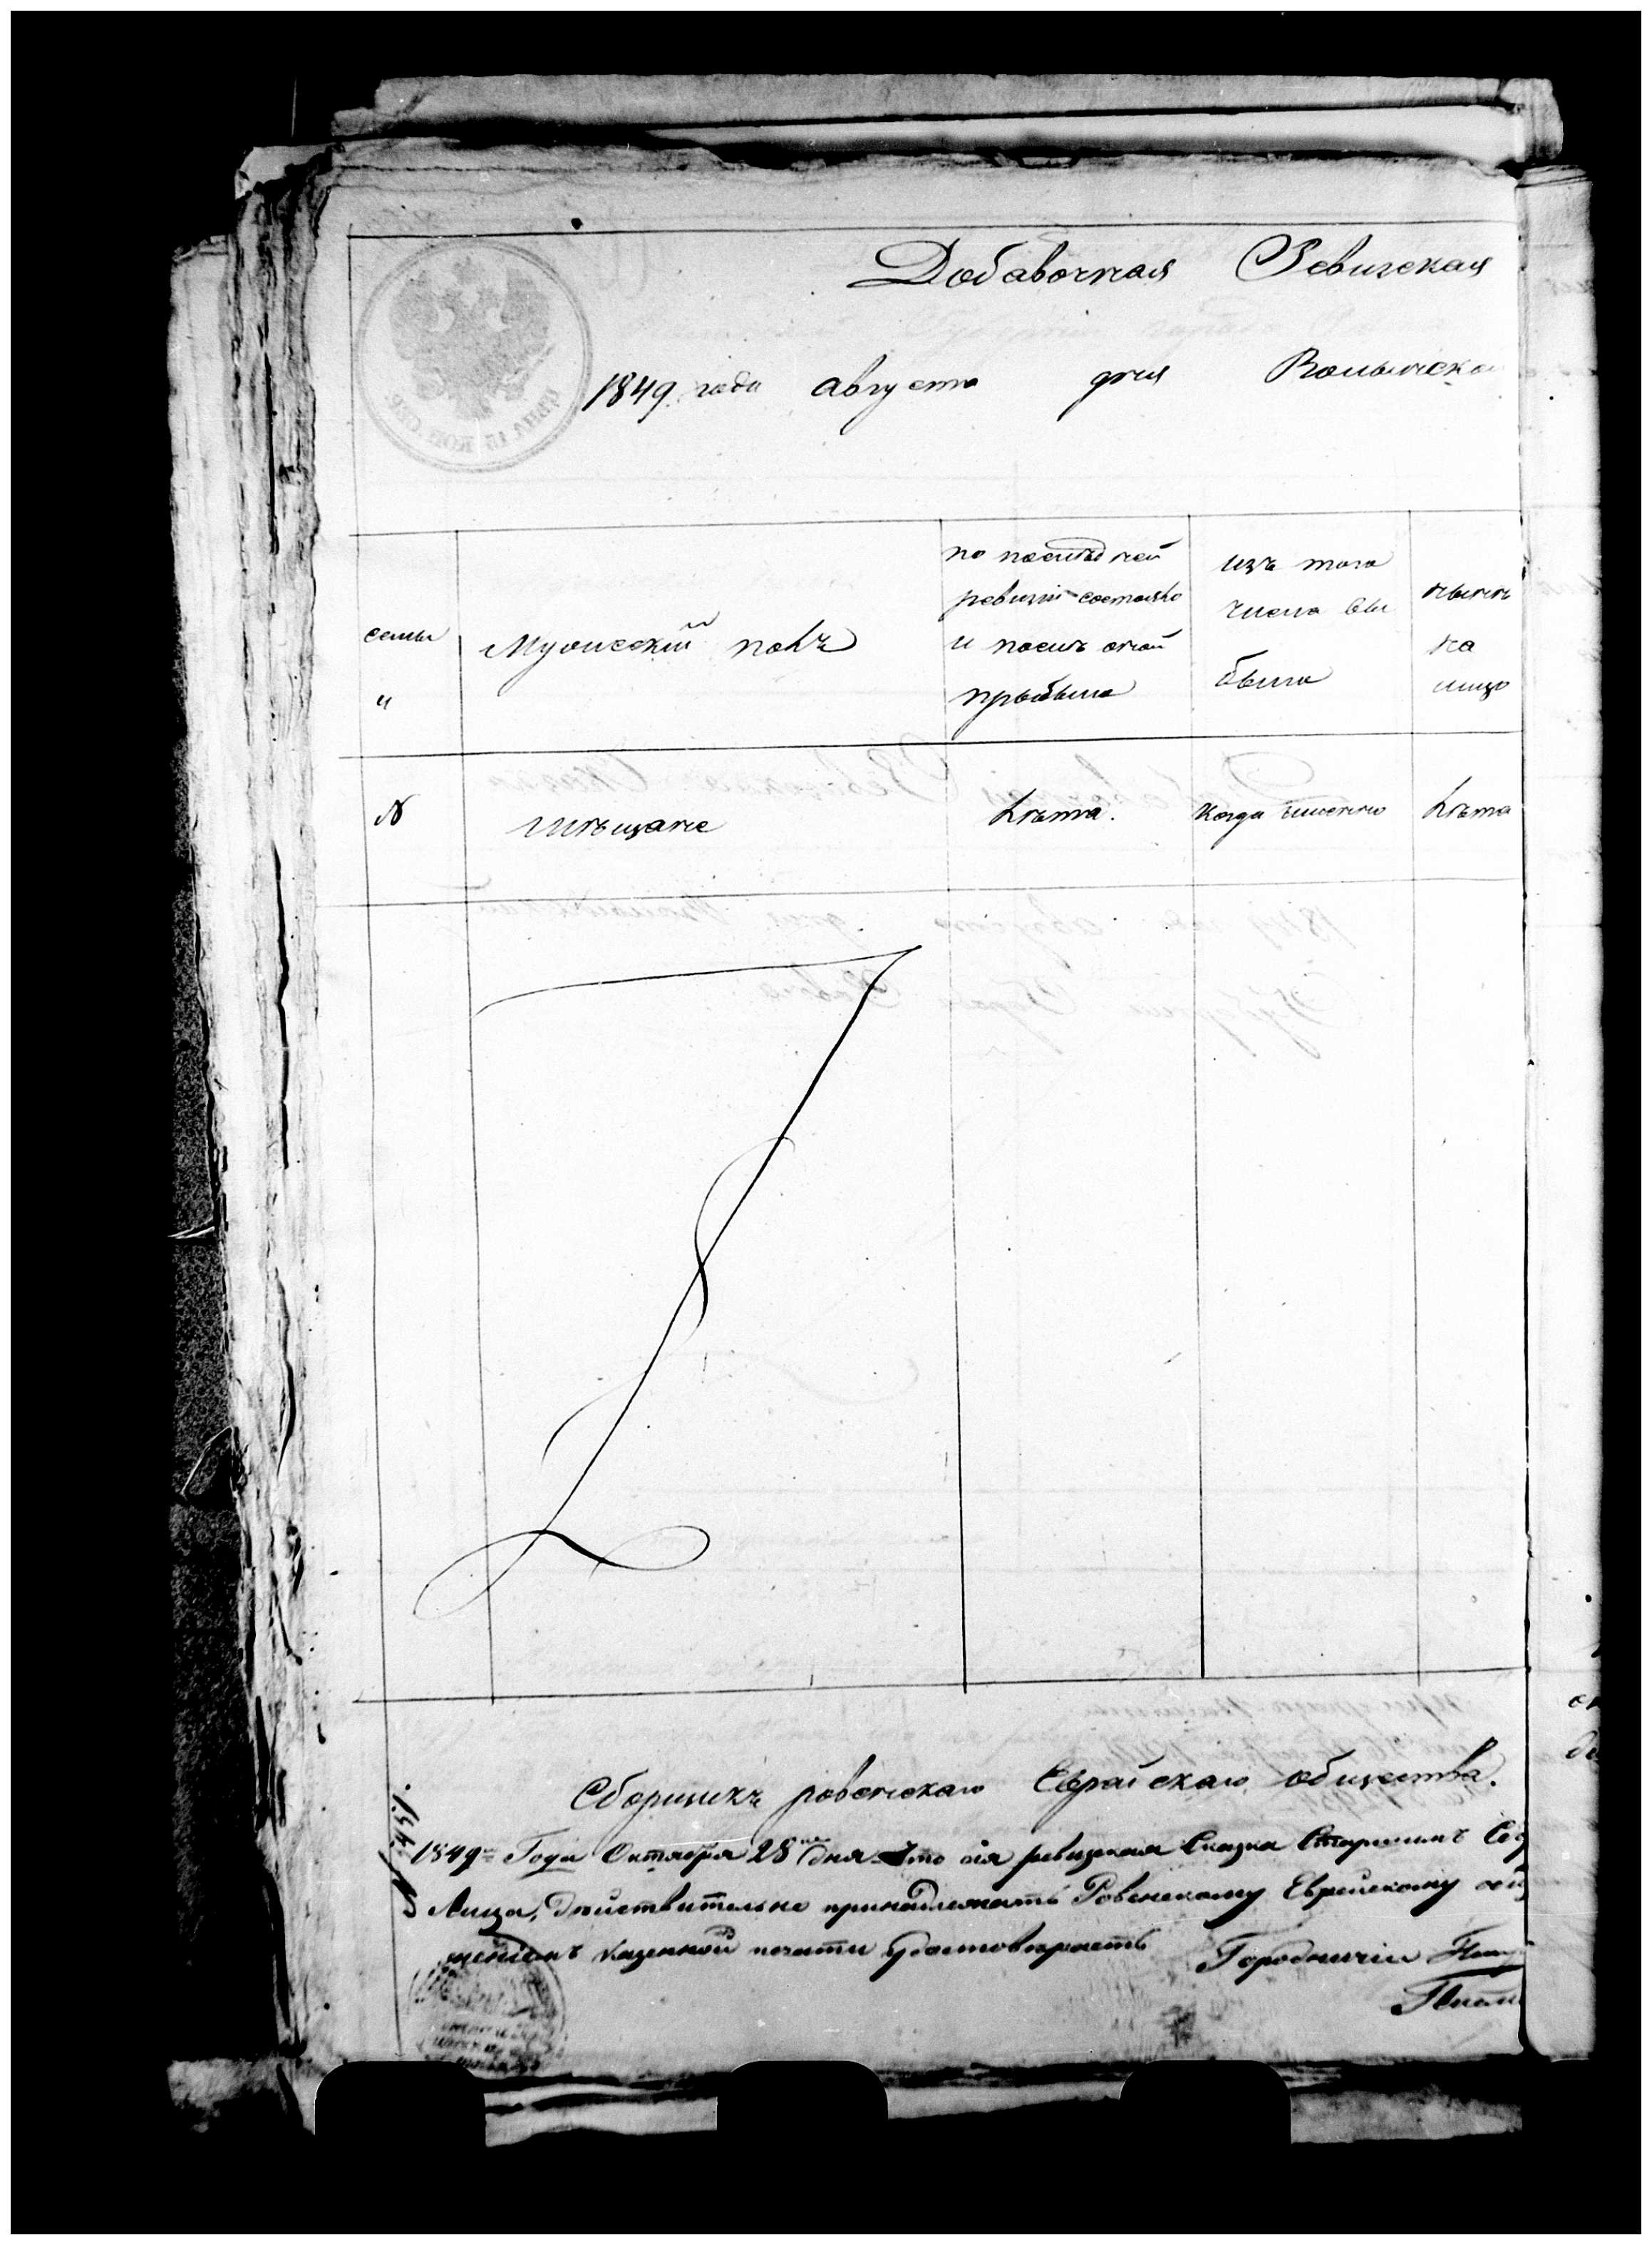 Добавочная Ревизская
1849 года августа дня Волынской
семьи
"
Мужескій полъ
по последней
ревизіи состояло
и послѣ оной
прибыло
изъ того
числа вы
было
нынѣ
на
лицо
№
Мѣщане
Лѣта.
Когда именно
Лѣта
Сборщикъ ровенскаго Еврейскаго общества.
1849 Года Октября 28 дня Что сія ревизская Сказка
Лица, действительно принадлежатъ Ровенскому Еврейскому
казенной печати удостовѣряетъ Городничій